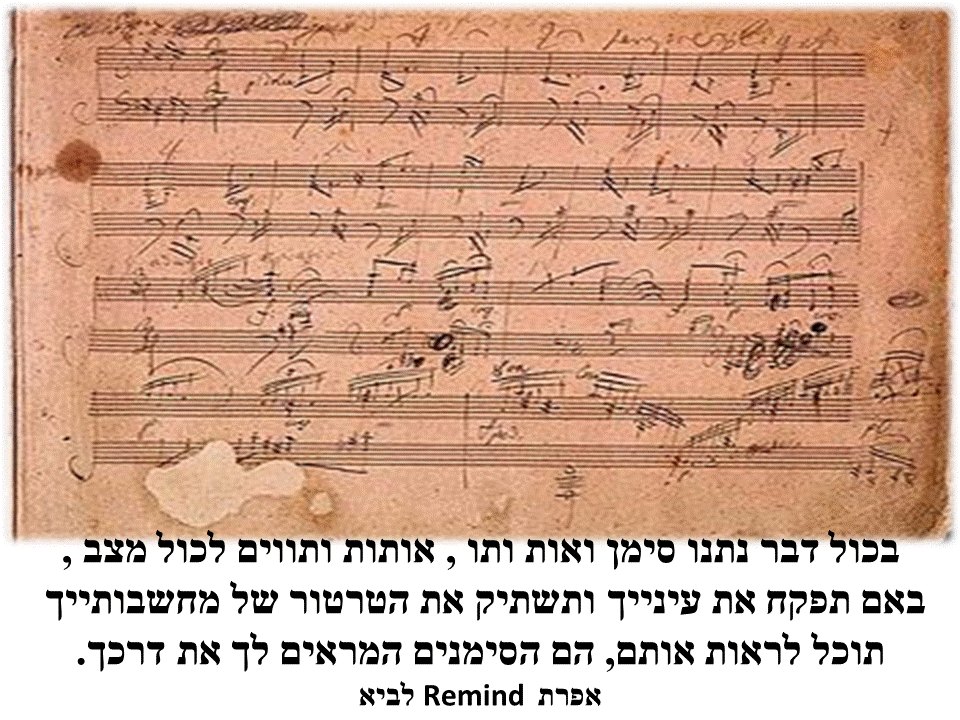 בכול דבר נתנו סימן ואות ותו , אותות ותווים לכול מצב ,
באם תפקח את עינייך ותשתיק את הטרטור של מחשבותייך
תוכל לראות אותם, הם הסימנים המראים לך את דרכך.
אפרת Remind לביא